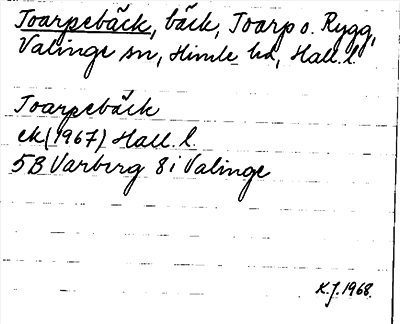 Toarpebäck, bäck, Toarp o. Rygg,
Valinge sn, Himle hd, Hall. l.
Toarpebäck
ek (1967) Hall. l.
5B Varberg 8i Valinge
K.J. 1968.